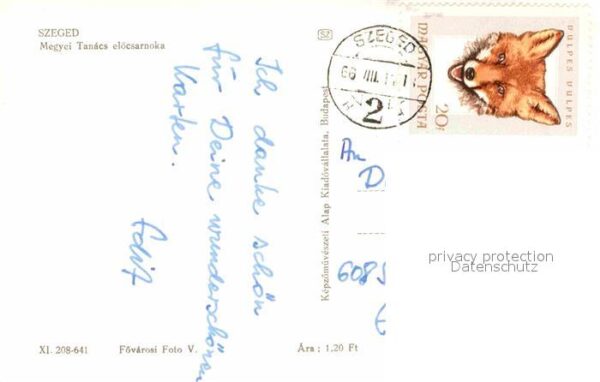 SZEGED
Megyei Tanács előcsarnoka
Ich danke schön
für Deine wunderschönen
Karten.
Edit
XI. 208-641 Fővárosi Foto V. Ára : 1,20 Ft
Képzőművészeti Alap Kiadóvállalata, Budapest
SZEGED
2
VULPES VULPES
MAGYAR POSTA
20f
An
D
6085
privacy protection
Datenschutz